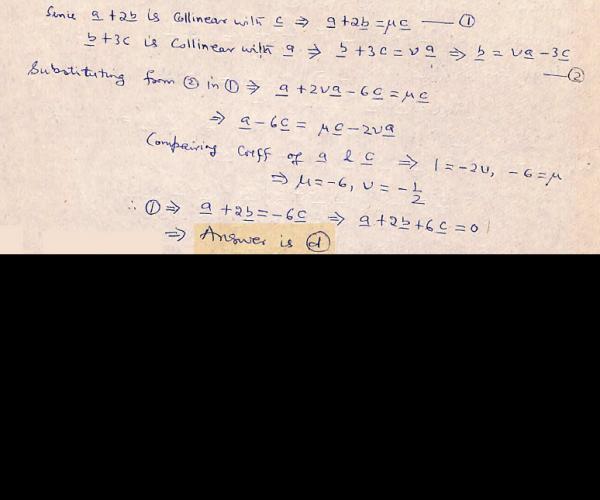 Sinie a + 2b is Collinear with c ⇒ a + 2b = μc — ①
b + 3c is Collinear with a ⇒ b + 3c = νa ⇒ b = νa − 3c
— ②
Substituting from ② in ① ⇒ a + 2νa − 6c = μc
⇒ a − 6c = μc − 2νa
Comparing Coeff of a & c ⇒ 1 = −2ν, −6 = μ
⇒ μ = −6, ν = −1/2
∴ ① ⇒ a + 2b = −6c ⇒ a + 2b + 6c = 0
⇒ Answer is ⓓ